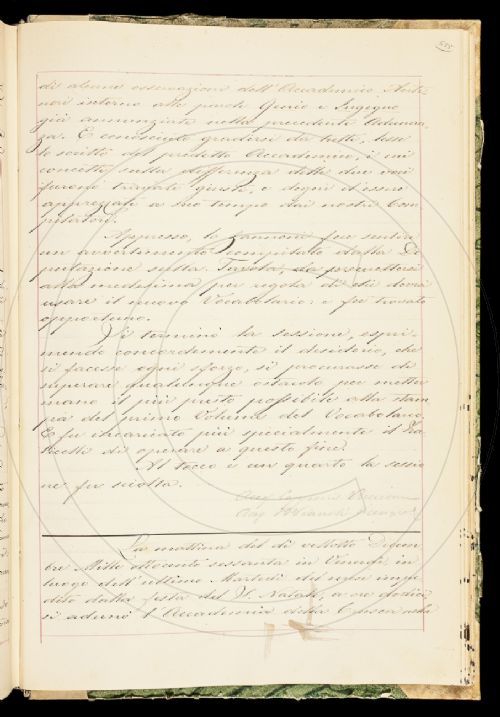 di alcune osservazioni dell'Accademico
nori intorno alle parole Genio e Ingegno
già annunziate nella precedente Adunan
za. E conosciuto gradirsi da tutti, lesse
lo scritto del predetto Accademico, i cui
concetti sulla differenza delle due voci
furono trovati giusti, e degni d'esser
apprezzati a suo tempo dai nostri Com
pilatori.
Appresso, il fece sentire
un avvertimento compilato dalla De
putazione sulla Tavola, da premettersi
alla medesima per regola di chi dovrà
usare il nuovo Vocabolario: e fu trovato
opportuno.
Si terminò la sessione, espri
mendo concordemente il desiderio, che
si facesse ogni sforzo, si procurasse di
superare qualunque ostacolo per metter
mano il più presto possibile alla stam
pa del primo Volume del Vocabolario.
E fu incaricato più specialmente il
di operare a questo fine.
Al tocco e un quarto la sessio
ne fu sciolta.
La mattina del dì Decem
bre Mille ottocento sessanta in Venerdì in
luogo dell'ultimo Martedì del mese impe
dito dalla festa del S. Natale, a ore dodici,
si adunò l'Accademia della Crusca nella